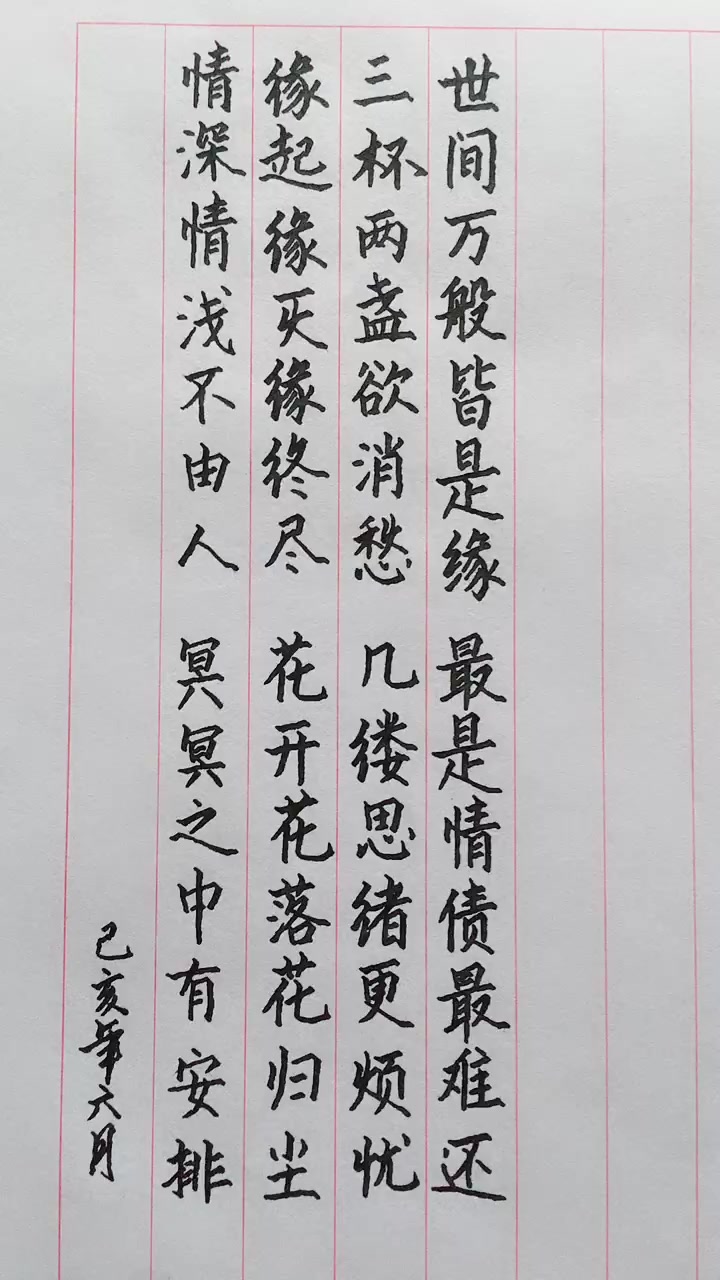 世间万般皆是缘 最是情债最难还
三杯两盏欲消愁 几缕思绪更烦忧
缘起缘灭缘终尽 花开花落花归尘
情深情浅不由人 冥冥之中有安排
己亥年六月